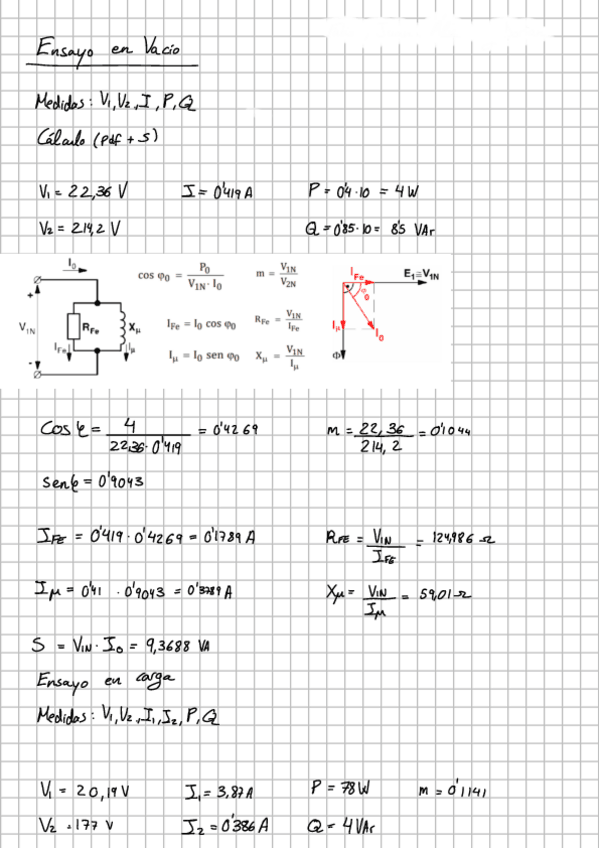 Ensayo en Vacio
Medidas: V1, V2, I, P, Q
Cálculo (pdf + S)
V1 = 22,36 V I = 0'419 A P = 0'4·10 = 4 W
V2 = 214,2 V Q = 0'85·10 = 8'5 VAr
I0
cos φ0 = P0 / V1N · I0 m = V1N / V2N IFe E1≡V1N
+ φ0
V1N RFe Xμ IFe = I0 cos φ0 RFe = V1N / IFe Iμ I0
IFe Iμ Iμ = I0 sen φ0 Xμ = V1N / Iμ Φ
-
Cos φ = 4 / 22,36·0'419 = 0'4269 m = 22,36 / 214,2 = 0'1044
sen φ = 0'9043
IFE = 0'419 · 0'4269 = 0'1789 A RFE = VIN / IFE = 124,986 Ω
Iμ = 0'41 · 0'9043 = 0'3789 A Xμ = VIN / Iμ = 59,01 Ω
S = VIN · I0 = 9,3688 VA
Ensayo en carga
Medidas: V1, V2, I1, I2, P, Q
V1 = 20,19 V I1 = 3,87 A P = 78 W m = 0'1141
V2 = 177 V I2 = 0'386 A Q = 4 VAr